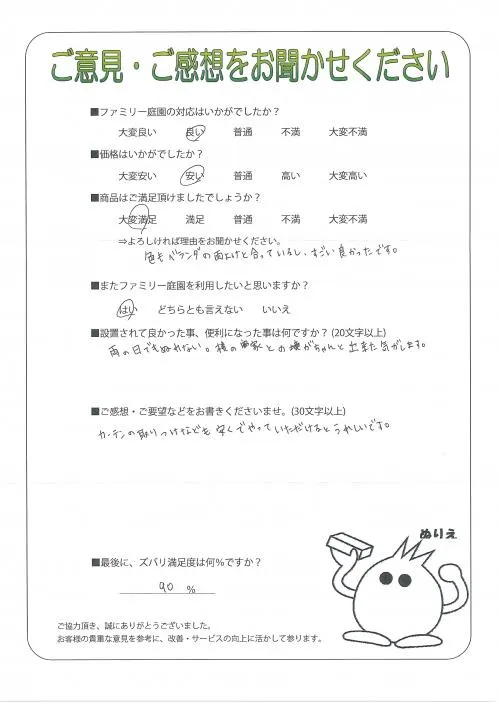 ご意見・ご感想をお聞かせください
■ファミリー庭園の対応はいかがでしたか？
大変良い 良い 普通 不満 大変不満
■価格はいかがでしたか？
大変安い 安い 普通 高い 大変高い
■商品はご満足頂けましたでしょうか？
大変満足 満足 普通 不満 大変不満
⇒よろしければ理由をお聞かせください。
色もベランダの面上と合っているし、すごい良かったです。
■またファミリー庭園を利用したいと思いますか？
はい どちらとも言えない いいえ
■設置されて良かった事、便利になった事は何ですか？(20文字以上)
雨の日でもぬれない。横の家との壊がちゃんと出来た気がします。
■ご感想・ご要望などをお書きくださいませ。(30文字以上)
カーテンの取りつけなども安くでやっていただけるとうれしいです。
ぬりえ
■最後に、ズバリ満足度は何％ですか？
90 %
ご協力頂き、誠にありがとうございました。
お客様の貴重な意見を参考に、改善・サービスの向上に活かして参ります。